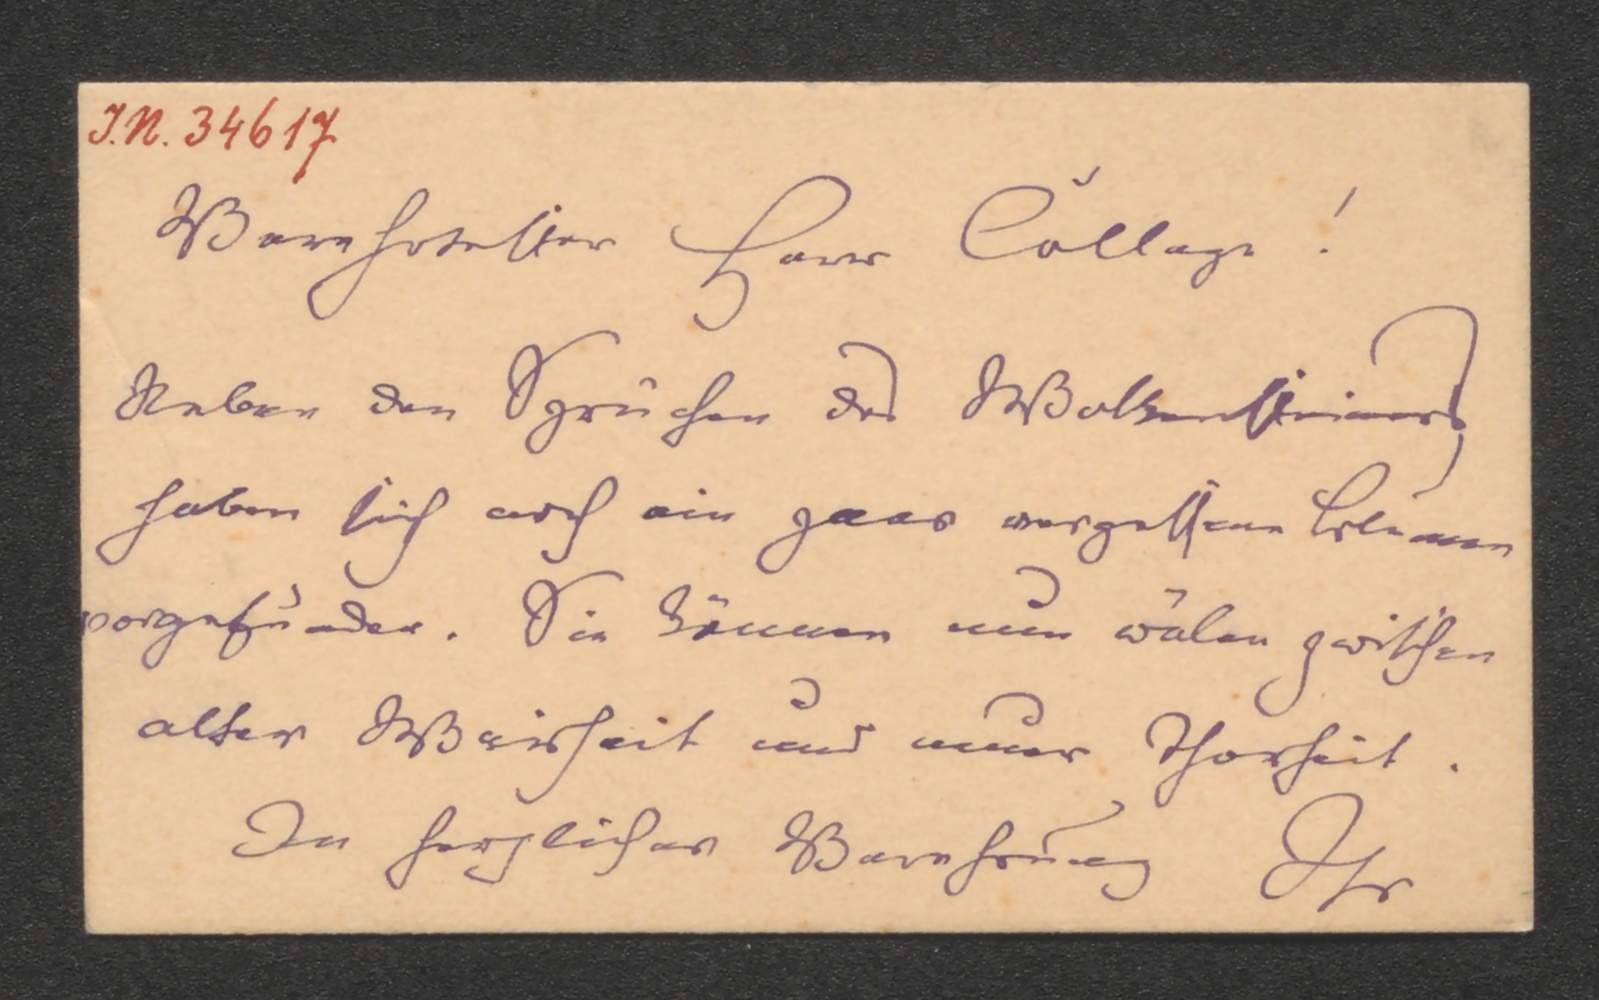 I.N. 34617
Verehrtester Herr College!
Neben den Sprüchen des Wolkensteiners
haben sich noch ein paar vergessene
vorgefunden. Sie können nun wälen zwischen
alter Weisheit und neuer Thorheit.
In herzlicher Verehrung Ihr